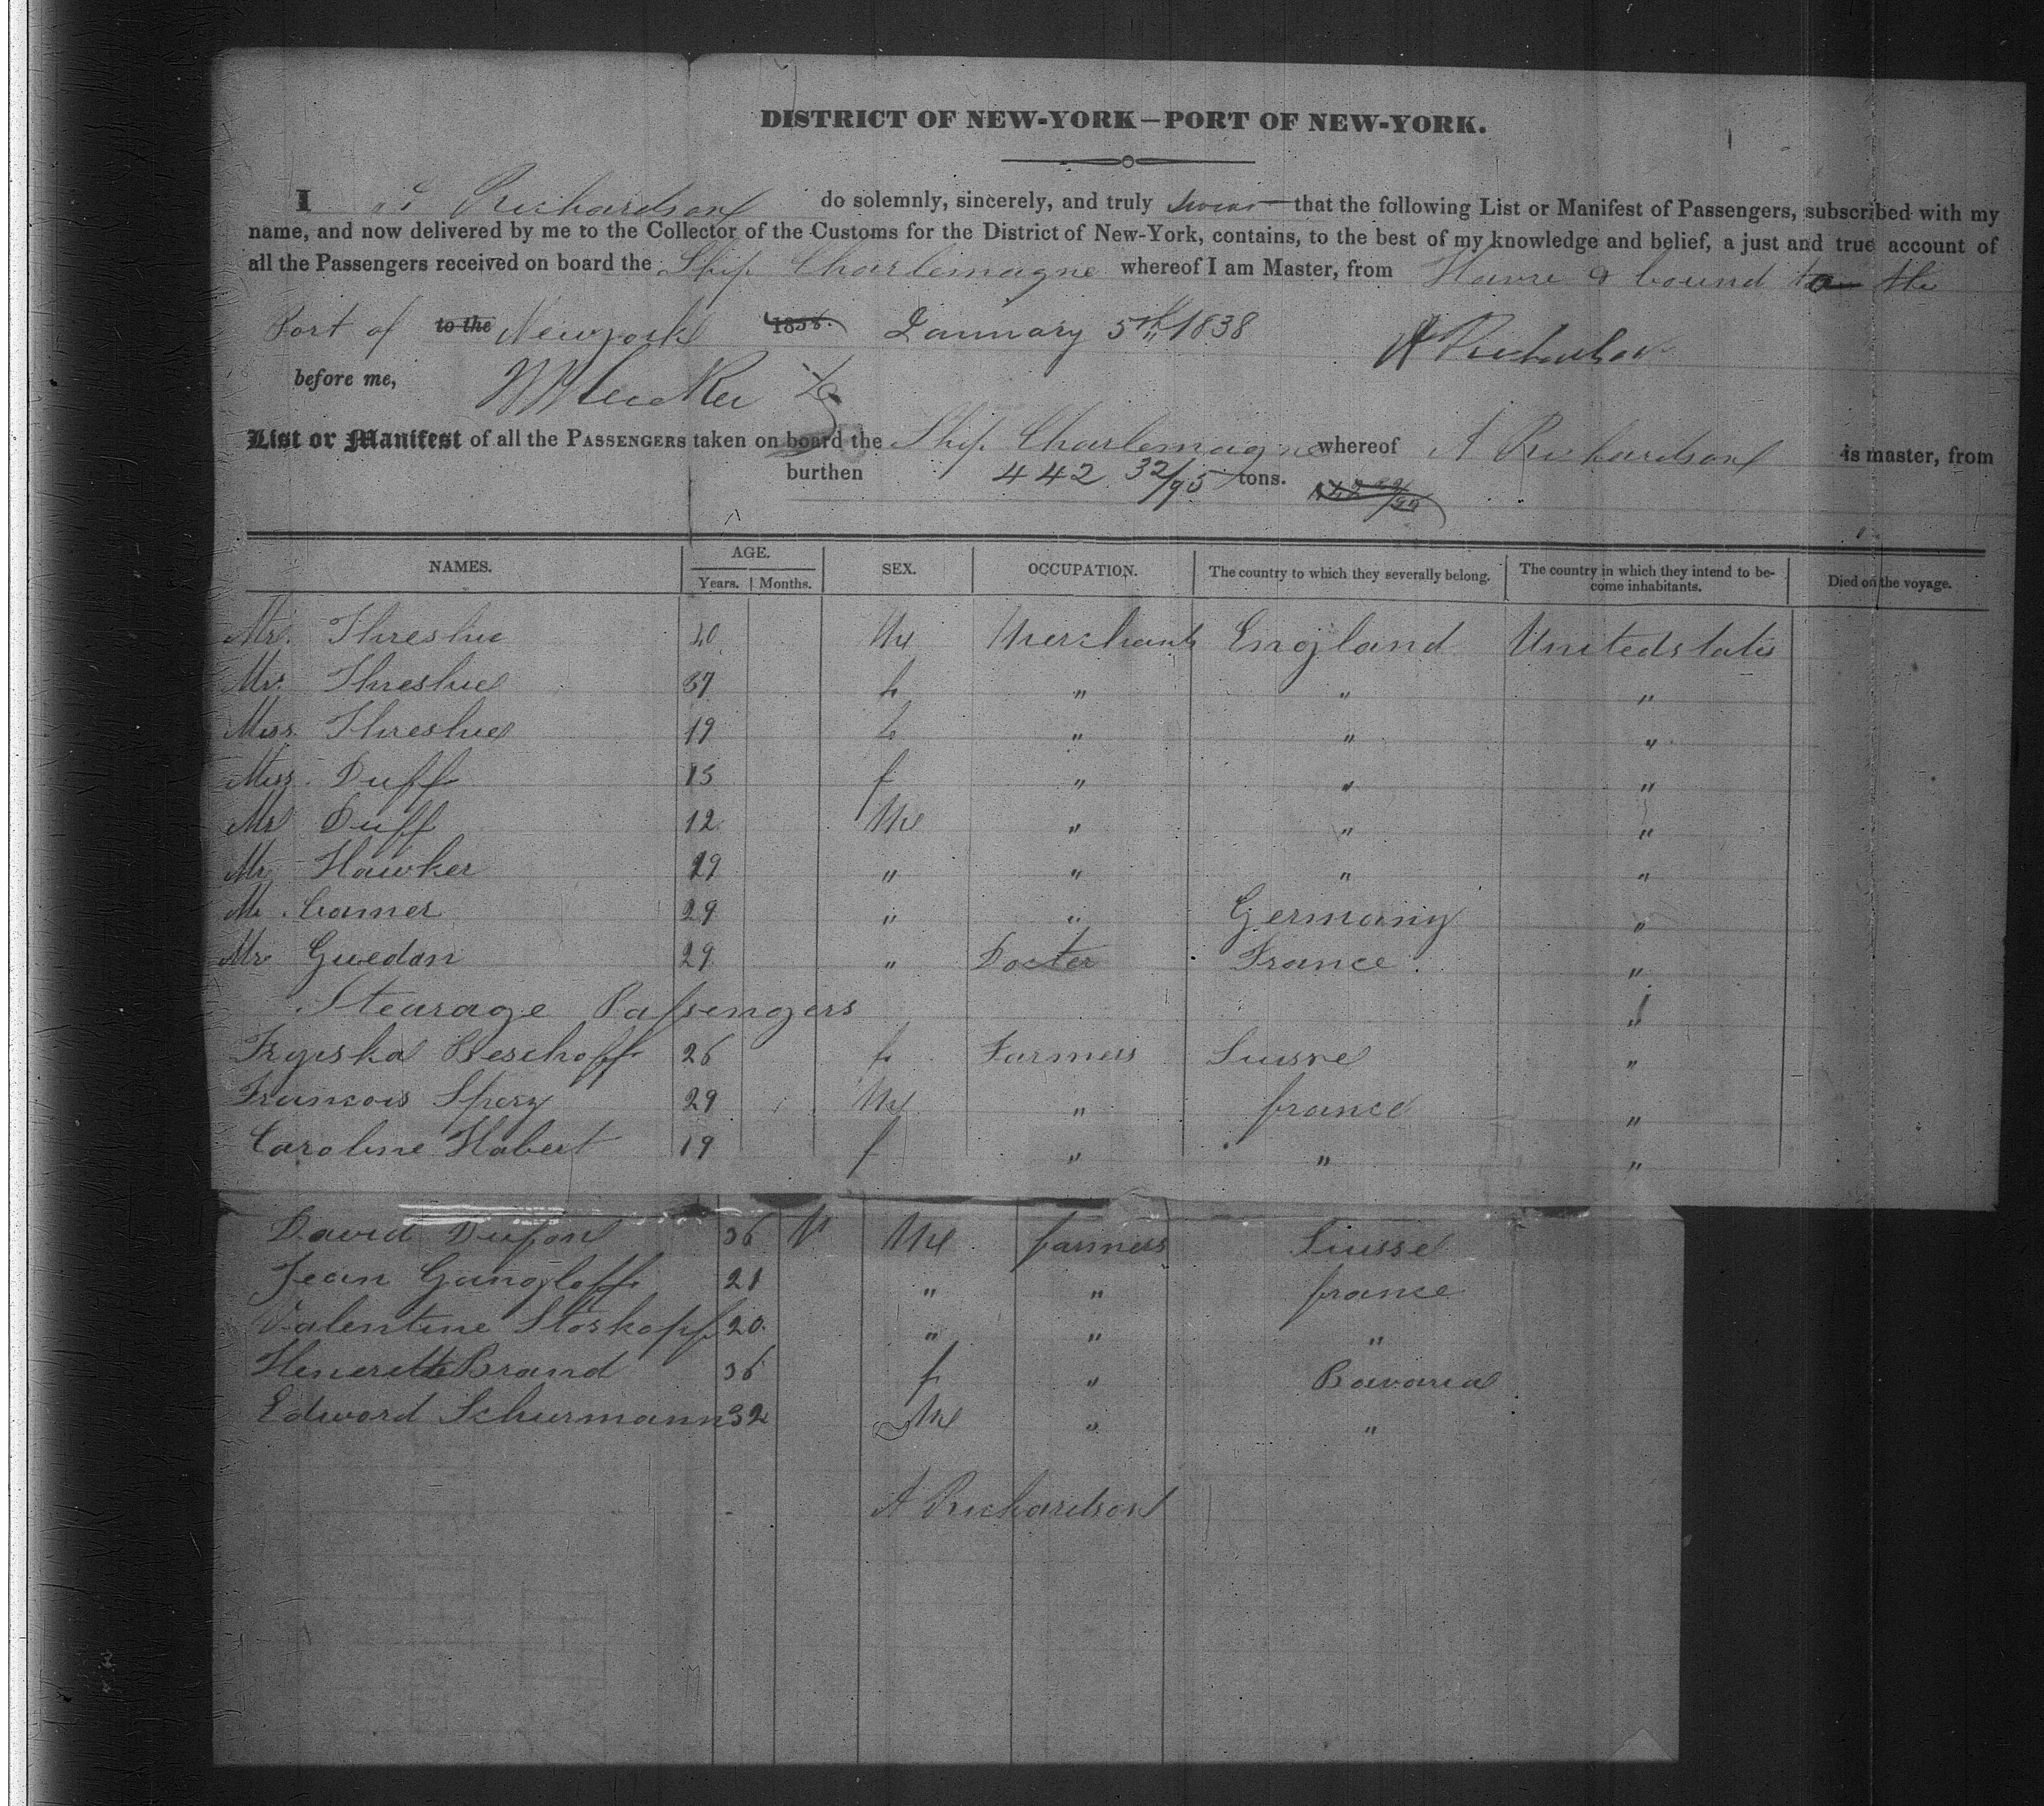 DISTRICT OF NEW-YORK—PORT OF NEW-YORK.
I A Richardson do solemnly, sincerely, and truly swear that the following List or Manifest of Passengers, subscribed with my
name, and now delivered by me to the Collector of the Customs for the District of New-York, contains, to the best of my knowledge and belief, a just and true account of
all the Passengers received on board the Ship Charlemagne whereof I am Master, from Havre & bound to the
Port of to the Newyork 183 January 5th 1838 A Richardson
before me,
List or Manifest of all the PASSENGERS taken on board the Ship Charlemagne whereof A Richardson is master, from
burthen 442 32/95 tons.
NAMES. AGE. Years. Months. SEX. OCCUPATION. The country to which they severally belong. The country in which they intend to become inhabitants. Died on the voyage.
Mr. Threshie 40 M Merchants England United states
Mrs. Threshie 37 f " " "
Miss Threshie 19 f " " "
Miss Duff 13 f " " "
Mr Duff 12 M " " "
Mr Hawker 19 " " " "
Mr. Comer 29 " " Germany "
Mr Guedon 29 " Docter France "
Stearage Passengers "
Beschoff 26 f Farmers Suisse "
Francois Spery 29 M " france "
Caroline Habert 19 f " " "
David Dufon 36 M farmers Suisse
Jean Gangloff 21 " " france
Valentine Storkopf 20 " " "
Brand 36 f " Bavaria
Edward Schurmann 32 M " "
A Richardson